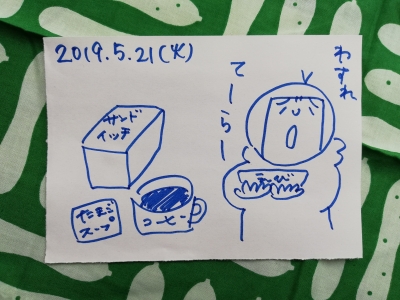 2019.5.21(火)
わすれ
てーらー
サンド
イッチ
たまご
スープ
コーヒー